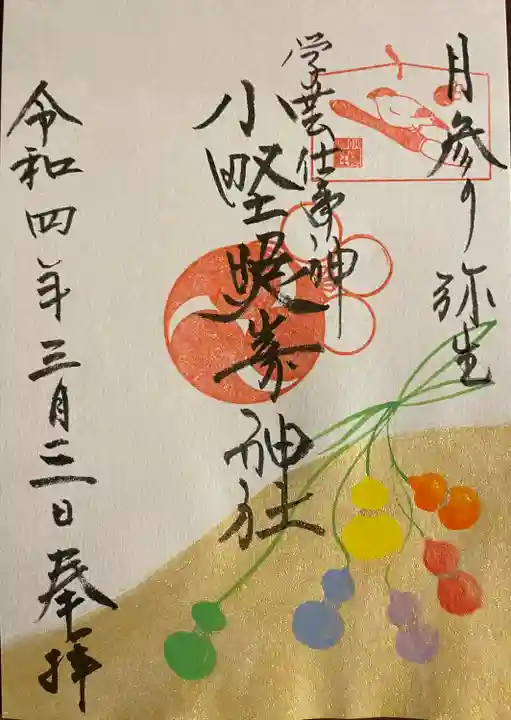 月参り 弥生
学芸仕事神
小野照崎神社
令和四年三月三日 奉拝